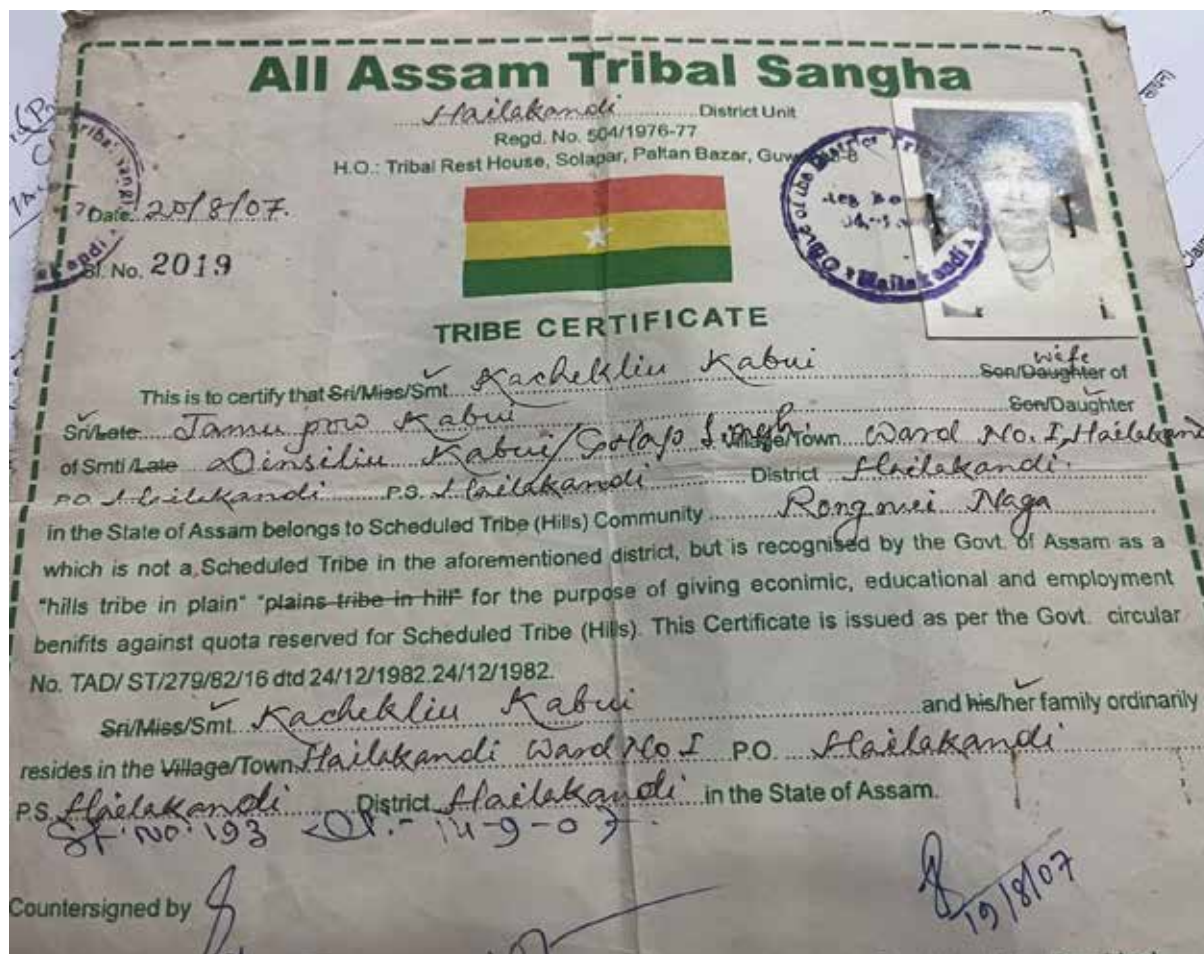 All Assam Tribal Sangha
Hailakandi District Unit
Regd. No. 504/1976-77
H.O.: Tribal Rest House, Solapar, Paltan Bazar,
Date. 20/8/07.
Sl. No. 2019
TRIBE CERTIFICATE
This is to certify that Sri/Miss/Smt. Kachekliu Kabui wife Son/Daughter of
Sri/Late Kabui Son/Daughter
of Smti/Late Dinsiliu Kabui/Golap Singh Village/Town Ward No. I, Hailakandi
P.O. Hailakandi P.S. Hailakandi District Hailakandi.
in the State of Assam belongs to Scheduled Tribe (Hills) Community Rongmei Naga
which is not a Scheduled Tribe in the aforementioned district, but is recognised by the Govt. of Assam as a
"hills tribe in plain" "plains tribe in hill" for the purpose of giving econimic, educational and employment
benifits against quota reserved for Scheduled Tribe (Hills). This Certificate is issued as per the Govt. circular
No. TAD/ ST/279/82/16 dtd 24/12/1982.24/12/1982.
Sri/Miss/Smt. Kachekliu Kabui and his/her family ordinarily
resides in the Village/Town Hailakandi Ward No I P.O. Hailakandi
P.S. Hailakandi District Hailakandi in the State of Assam.
No. 193 14-9-07
Countersigned by
19/8/07